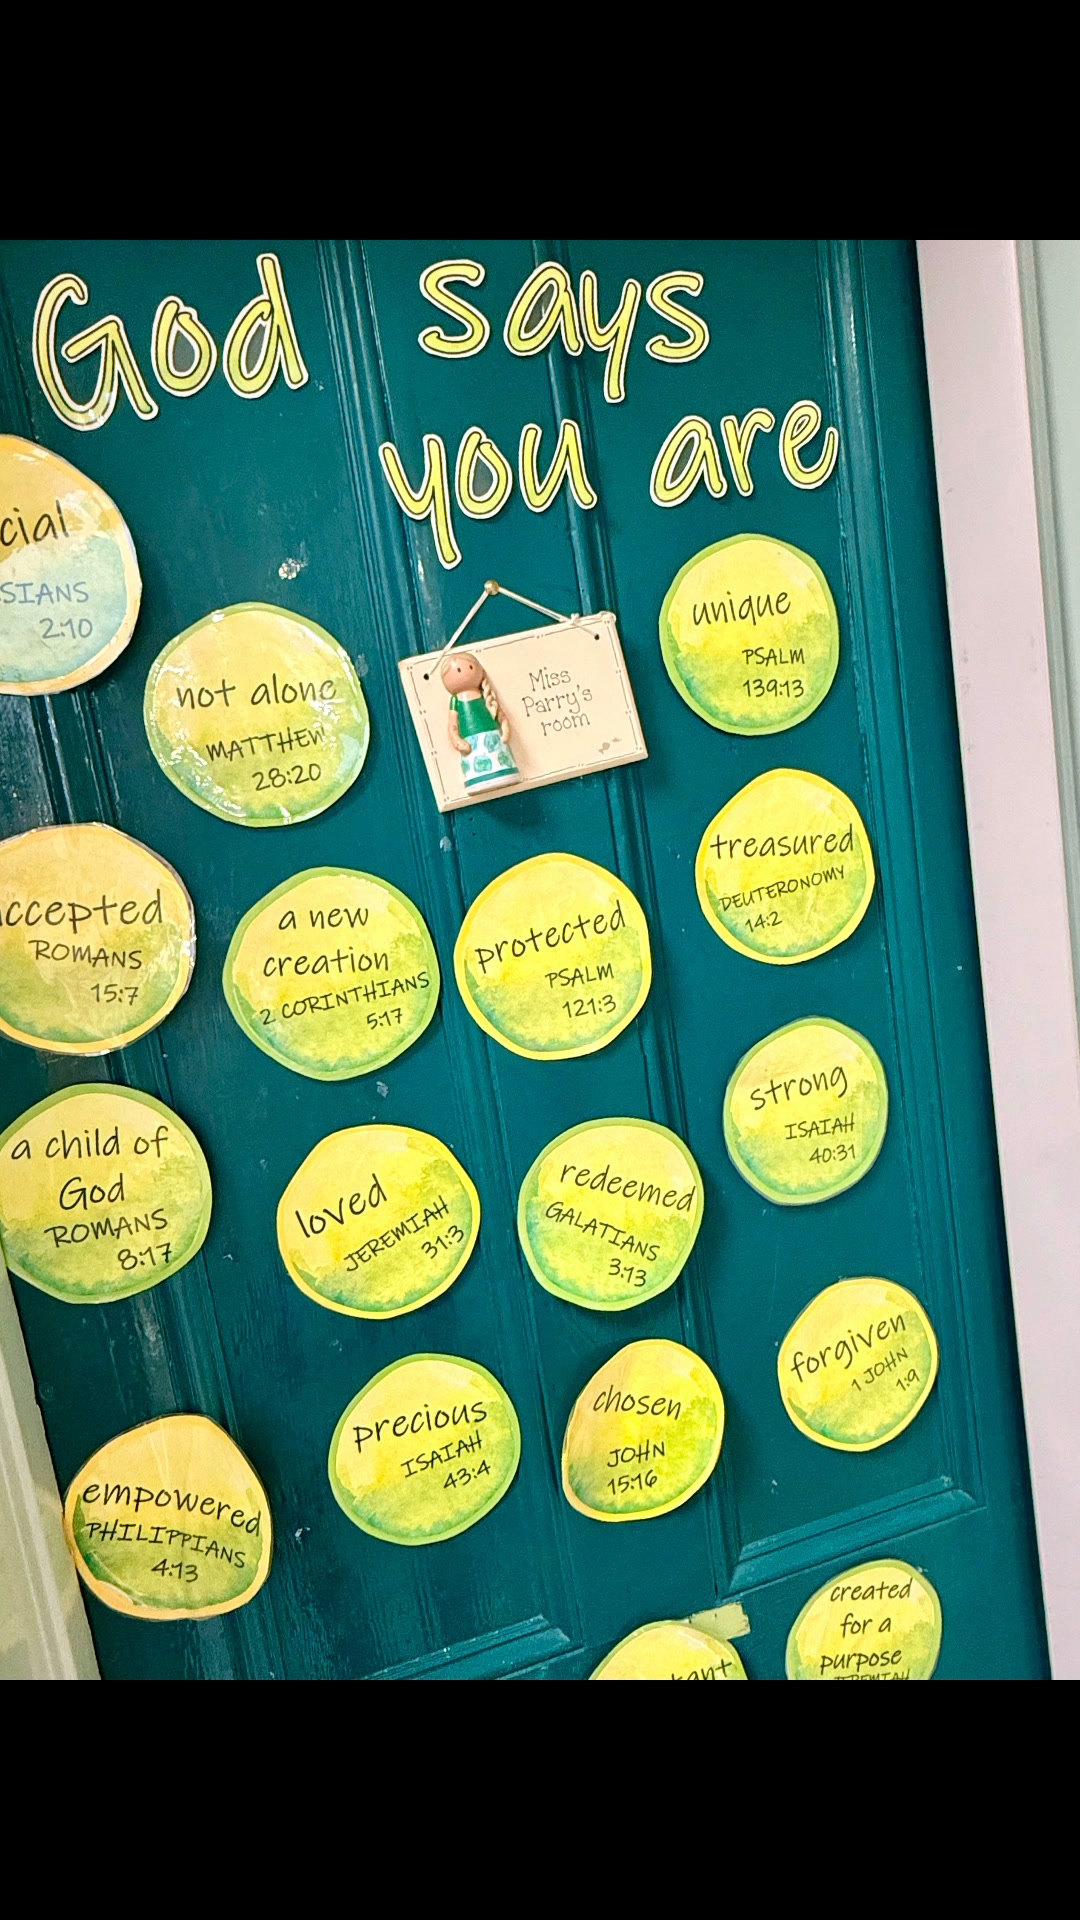 God says
you are
cial
SIANS
2:10
not alone
MATTHEW
28:20
Miss
Parry's
room
unique
PSALM
139:13
ccepted
ROMANS
15:7
a new
creation
2 CORINTHIANS
5:17
protected
PSALM
121:3
treasured
DEUTERONOMY
14:2
a child of
God
ROMANS
8:17
loved
JEREMIAH
31:3
redeemed
GALATIANS
3:13
strong
ISAIAH
40:31
empowered
PHILIPPIANS
4:13
precious
ISAIAH
43:4
chosen
JOHN
15:16
forgiven
1 JOHN
1:9
tant
created
for a
purpose
JEREMIAH